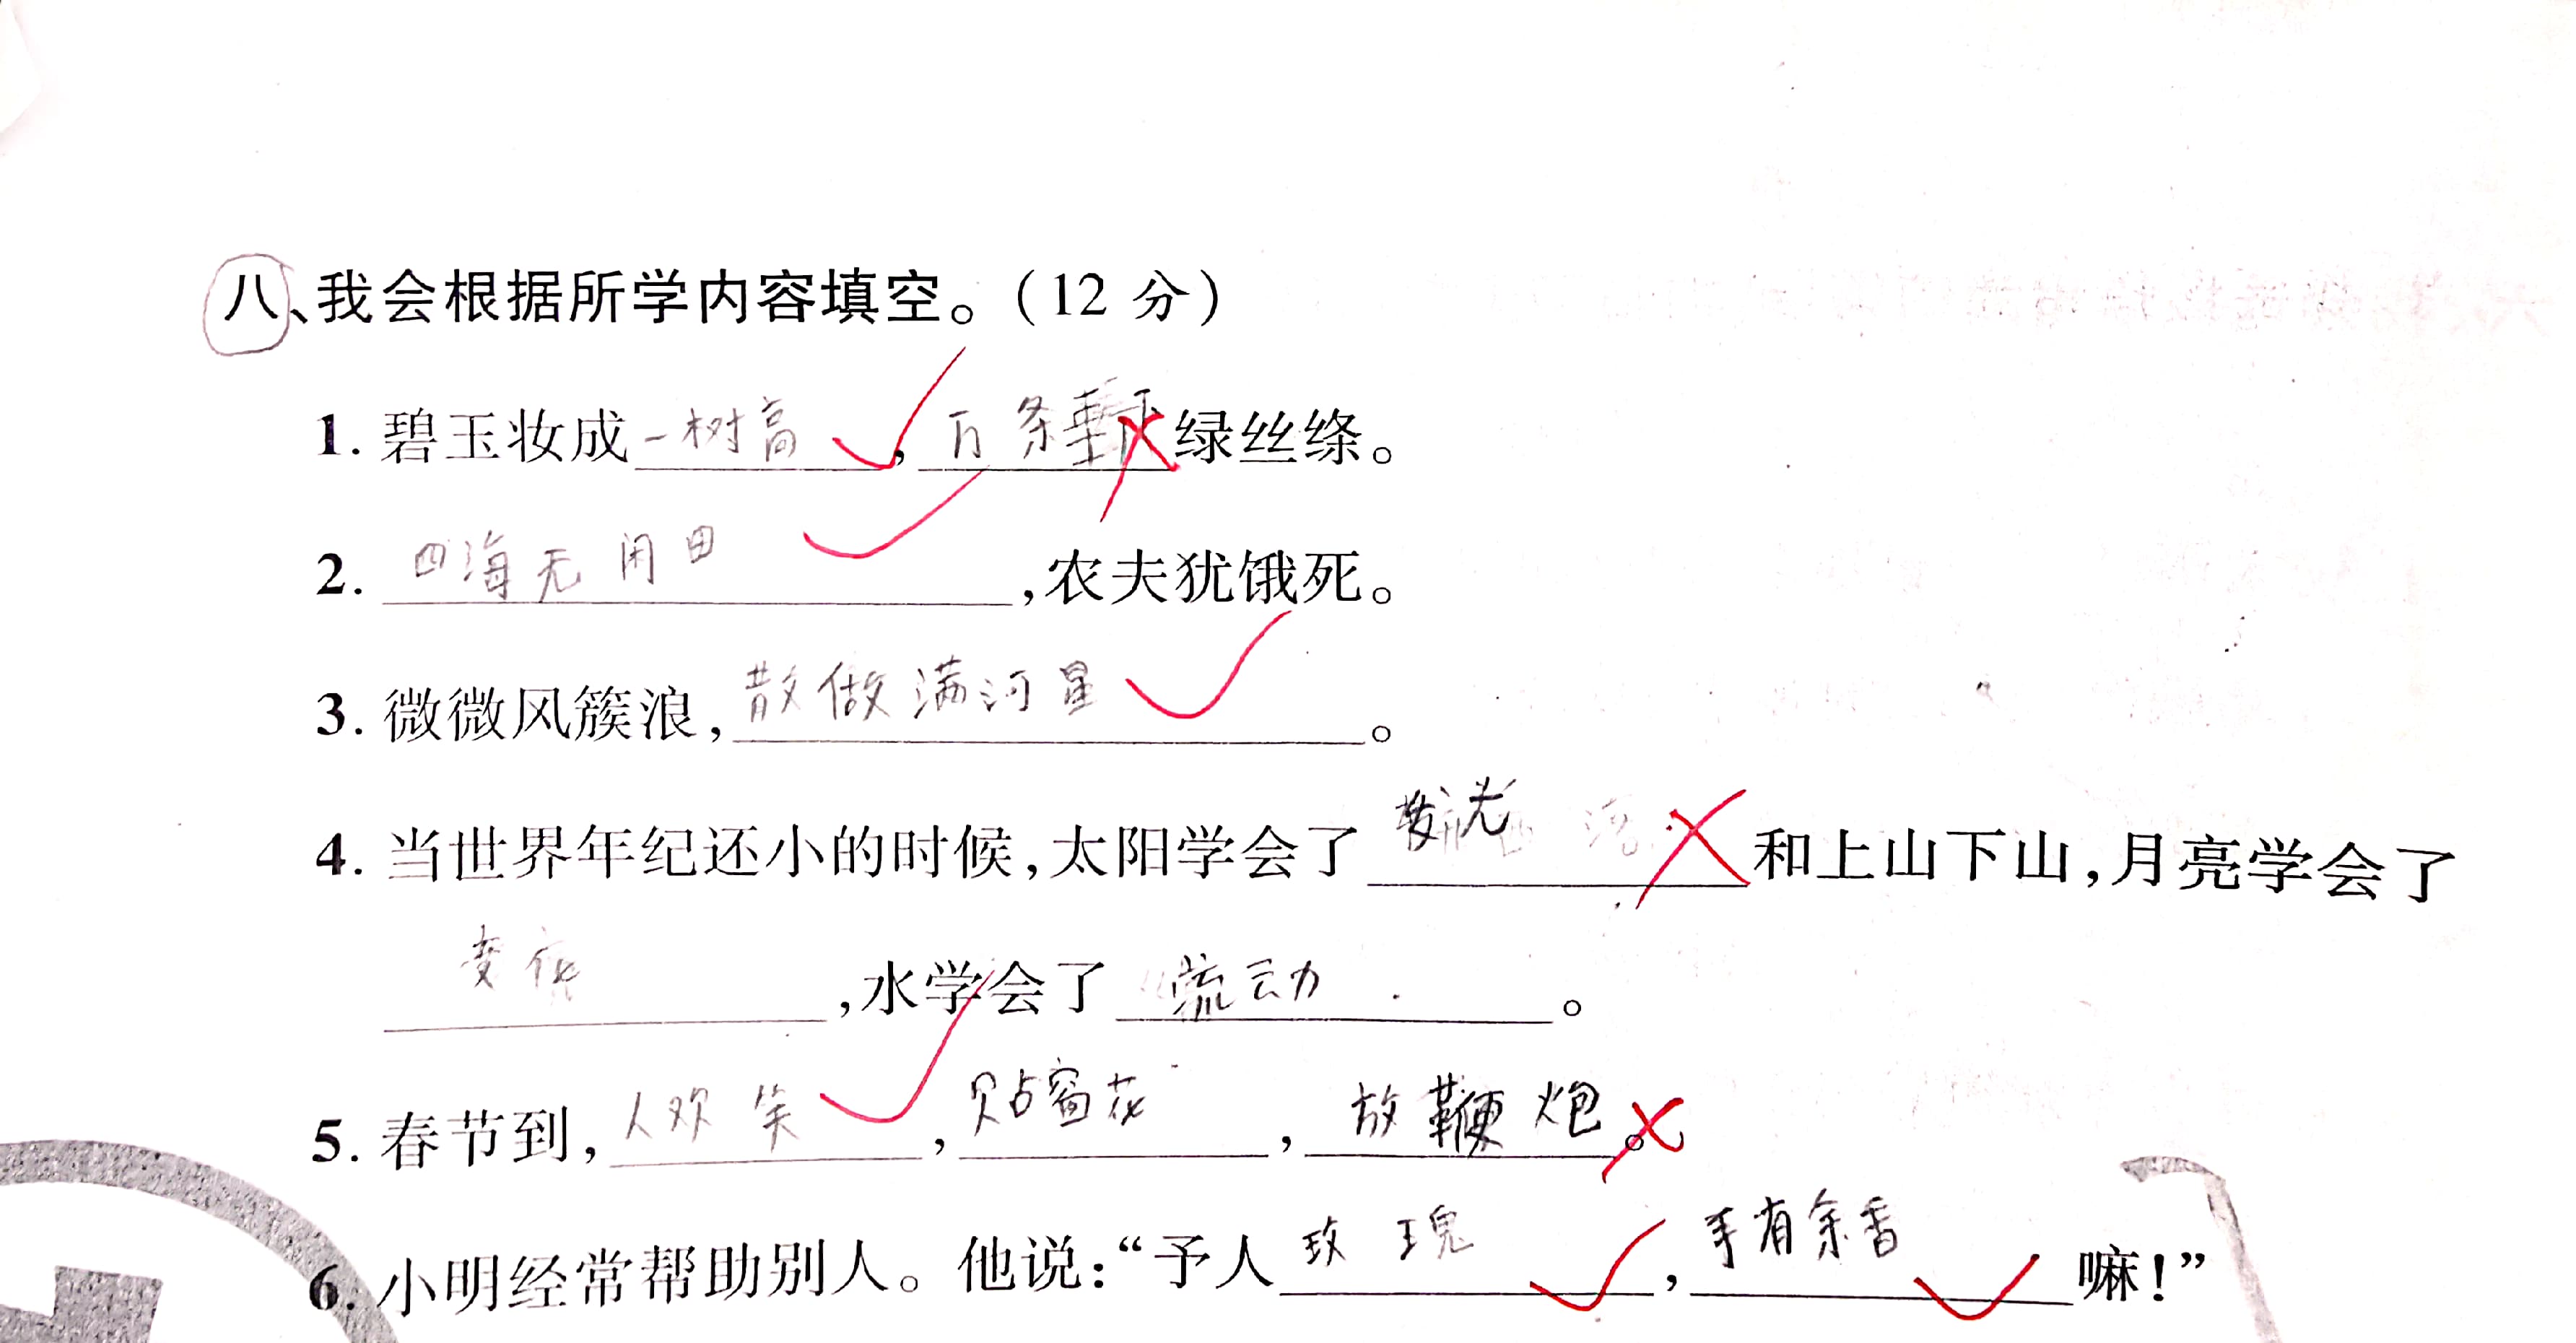 八、我会根据所学内容填空。(12 分)
1. 碧玉妆成一树高,万条垂下绿丝绦。
2. 四海无闲田,农夫犹饿死。
3. 微微风簇浪,散做满河星。
4. 当世界年纪还小的时候,太阳学会了发光和上山下山,月亮学会了
变化,水学会了流动。
5. 春节到,人欢笑,贴窗花,放鞭炮。
6. 小明经常帮助别人。他说:“予人玫瑰,手有余香嘛!”